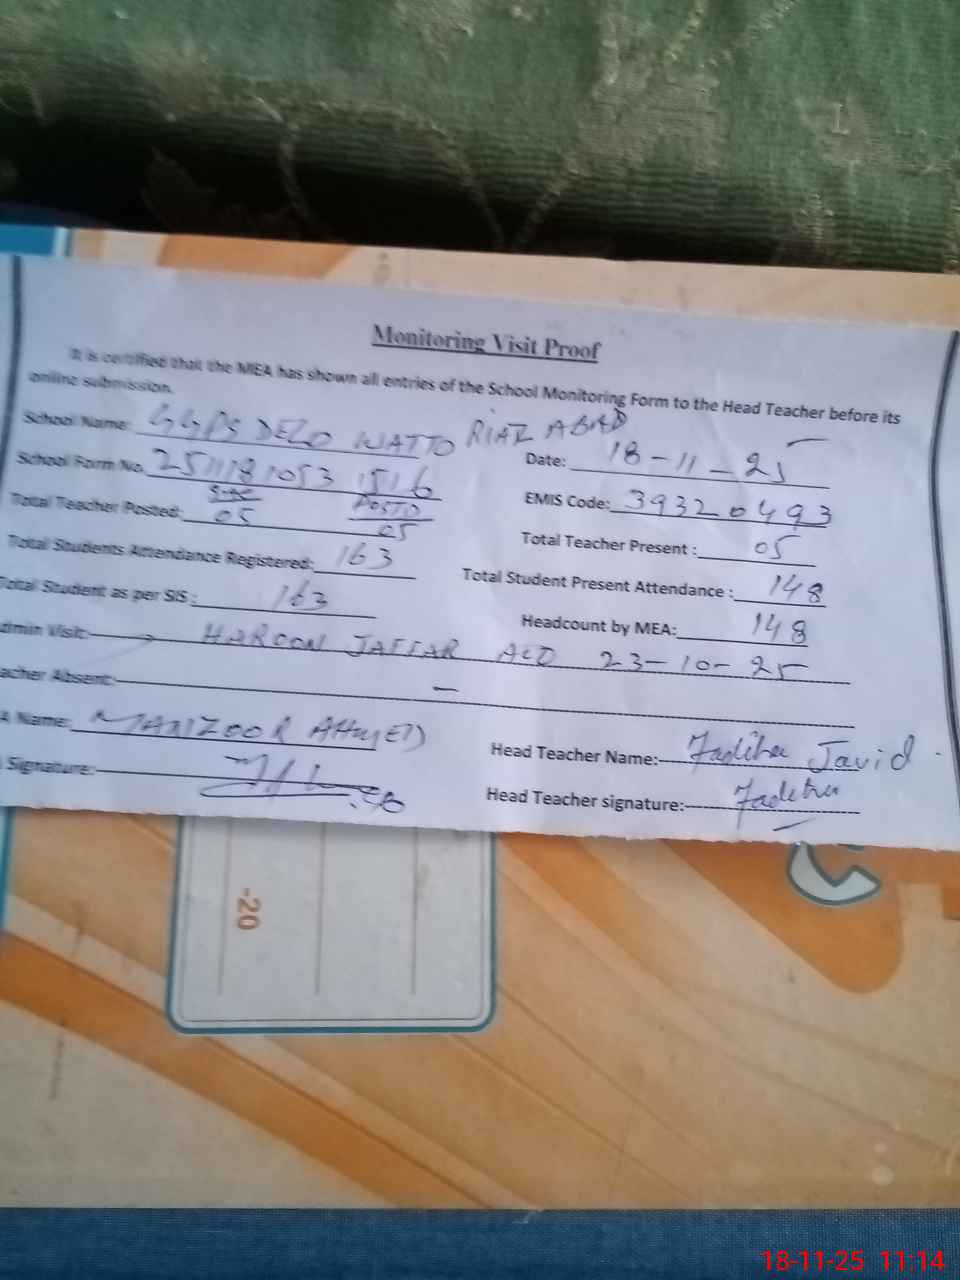 Monitoring Visit Proof
It is certified that the MEA has shown all entries of the School Monitoring Form to the Head Teacher before its
online submission.
School Name: GGPS DELO WATTO RIAZ ABAD
Date: 18-11-25
School Form No. 2511181053 1516
EMIS Code: 39320493
Total Teacher Posted: 05 05
Total Teacher Present : 05
Total Students Attendance Registered: 163
Total Student Present Attendance : 148
Total Student as per SIS : 163
Headcount by MEA: 148
dmin Visit: HAROON JAFFAR AEO 23-10-25
acher Absent: —
A Name: MANZOOR AHMED
Head Teacher Name: Javid
Signature:
Head Teacher signature:
-20
18-11-25 11:14